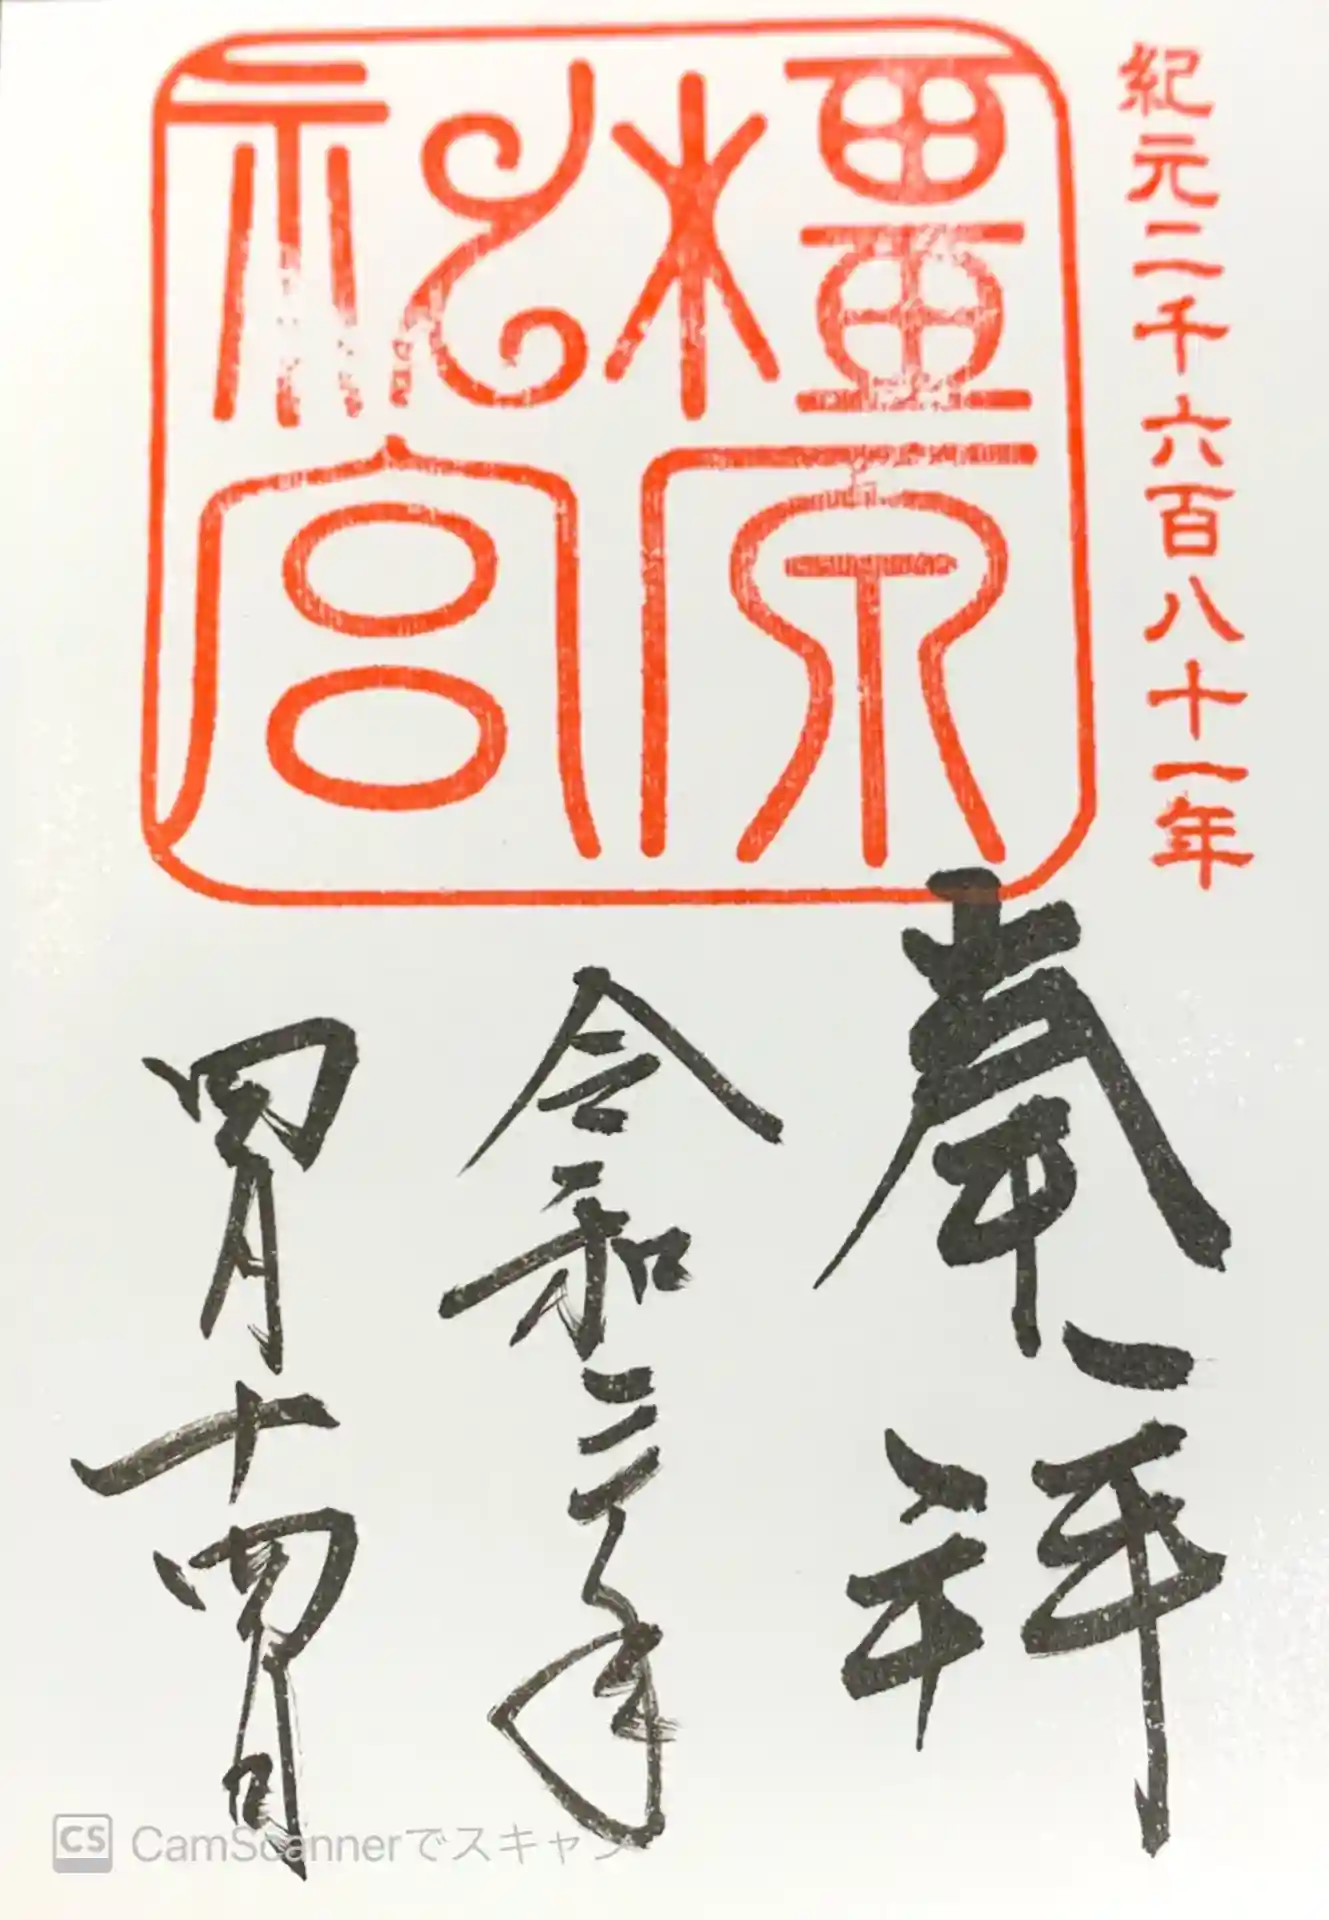 紀元二千六百八十一年
橿原
神宮
奉拝
令和三年
四月十四日
CamScannerでスキャン